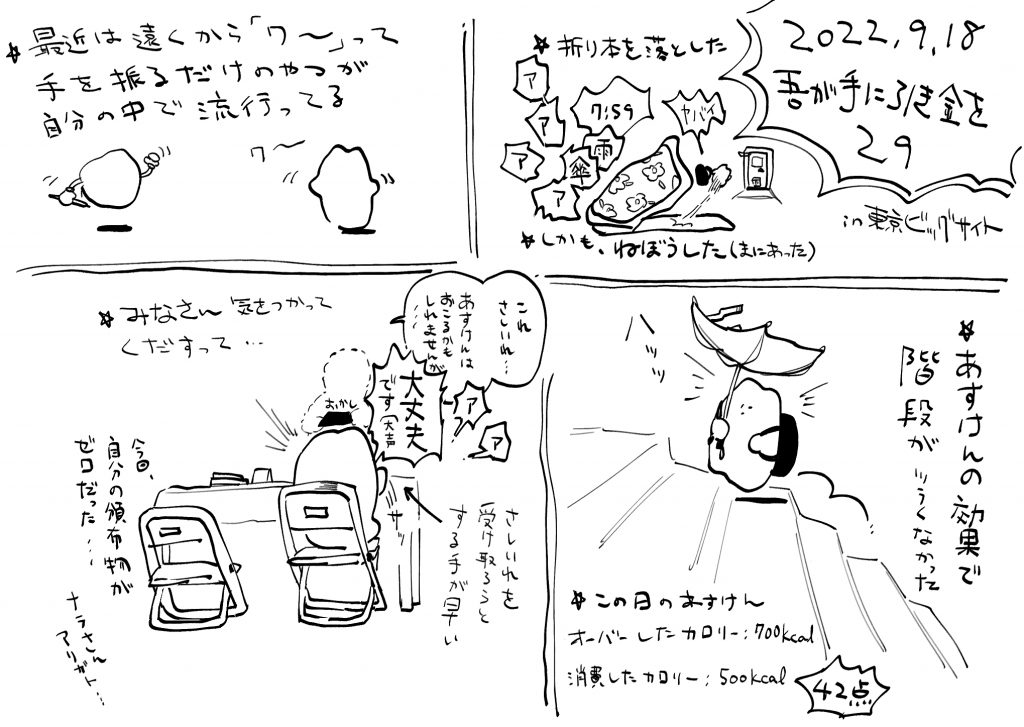 2022.9.18
吾が手に引き金を
29
in 東京ビッグサイト
★折り本を落とした
ア
ア
ア
ア
7:59
雨
傘
ヤバイ
★しかも、ねぼうした(まにあった)
★最近は遠くから「ワ〜」って
手を振るだけのやつが
自分の中で流行ってる
ワ〜
★あすけんの効果で
階段がツラくなかった
ハッ
ハッ
★この日のあすけん
オーバーしたカロリー:700kcal
消費したカロリー:500kcal
42点
★みなさん気をつかって
くだすって…
これ
さしいれ…
あすけんは
おこるかも
しれませんが
……
大丈夫
です(大声
ア
ア
おかし
サッ
さしいれを
受け取ろうと
する手が早い
今回、
自分の頒布物が
ゼロだった…
ナラさん
アリガト…